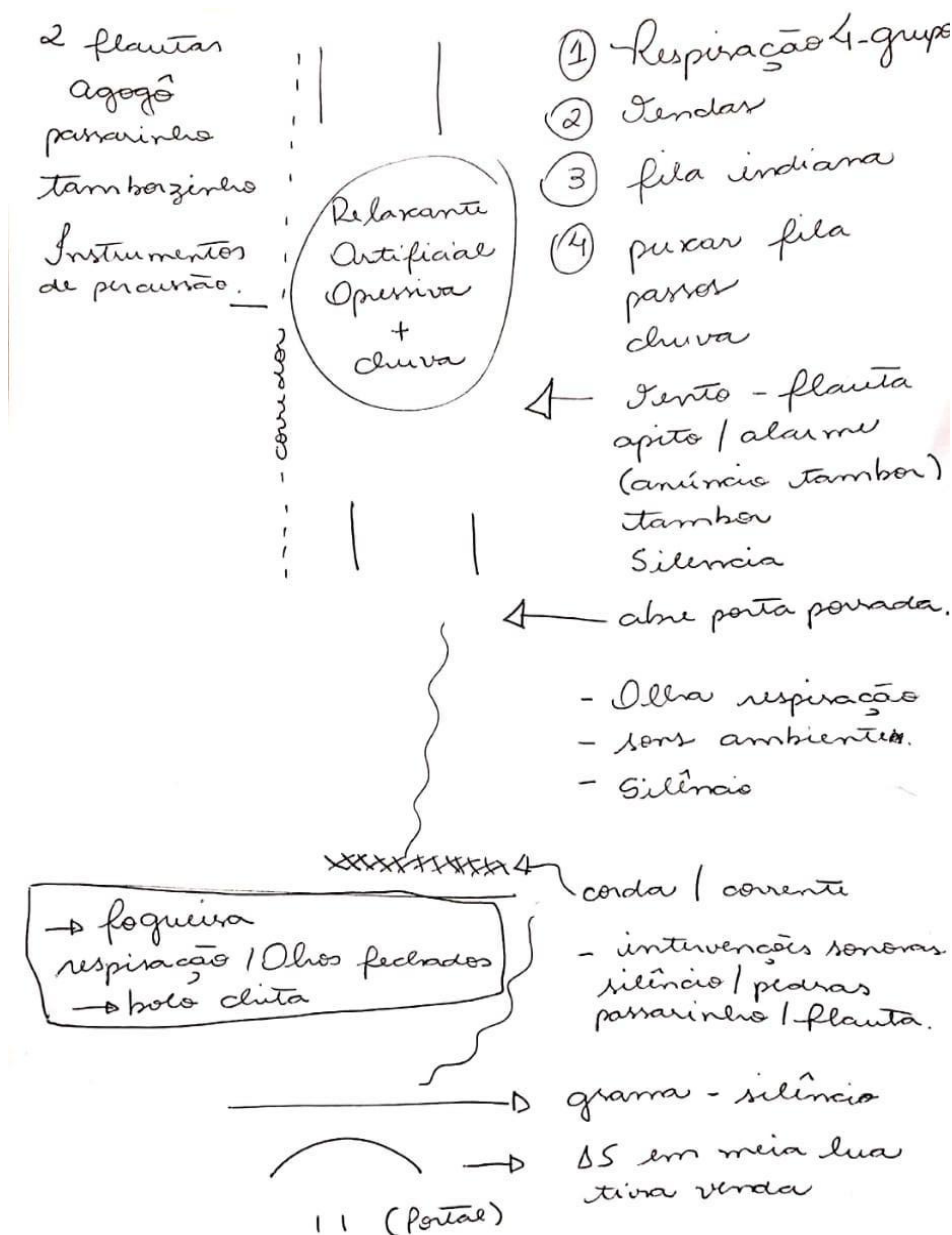 2 flautas
agogô
passarinho
tamborzinho
Instrumentos
de percussão.
corredor
Relaxante
Artificial
Opressiva
+
chuva
① Respiração 4-grupo
② Vendas
③ fila indiana
④ puxar fila
passos
chuva
Vento - flauta
apito / alarme
(anúncio tambor)
tambor
Silencia
abre porta pousada.
- Olha respiração
- sons ambientes.
- Silêncio
corda / corrente
→ fogueira
respiração / Olhos fechados
→ bolo chita
- intervenções sonoras
silêncio / pedras
passarinho / flauta.
grama - silêncio
ΔS em meia lua
tira venda
(Portal)